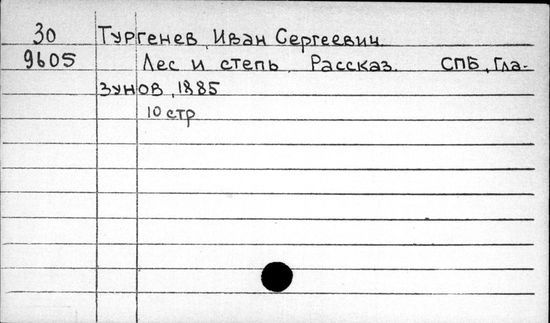 30 Тургенев, Иван Сергеевич.
9605 Лес и степь. Рассказ. СПБ, Гла-
зунов, 1885
10 стр